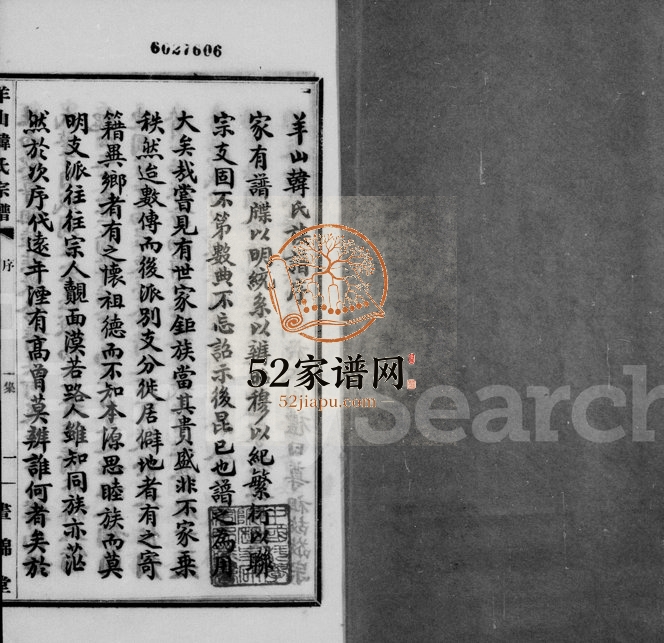 6027606
羊山韓氏族譜序
家有譜牒以明統系以辨昭穆以紀繁衍以聯
宗支固不第數典不忘詔示後昆已也譜之為用
大矣哉嘗見有世家鉅族當其貴盛非不家乘
秩然迨數傳而後派別支分徙居僻地者有之寄
籍異鄉者有之懷祖德而不知本源思睦族而莫
明支派往往宗人覿面漠若路人雖知同族亦茫
然於次序代遠年湮有高曾莫辨誰何者矣於
羊山韓氏宗譜
序
一集
一
晝錦堂
52家谱网
52jiapu.com
Search